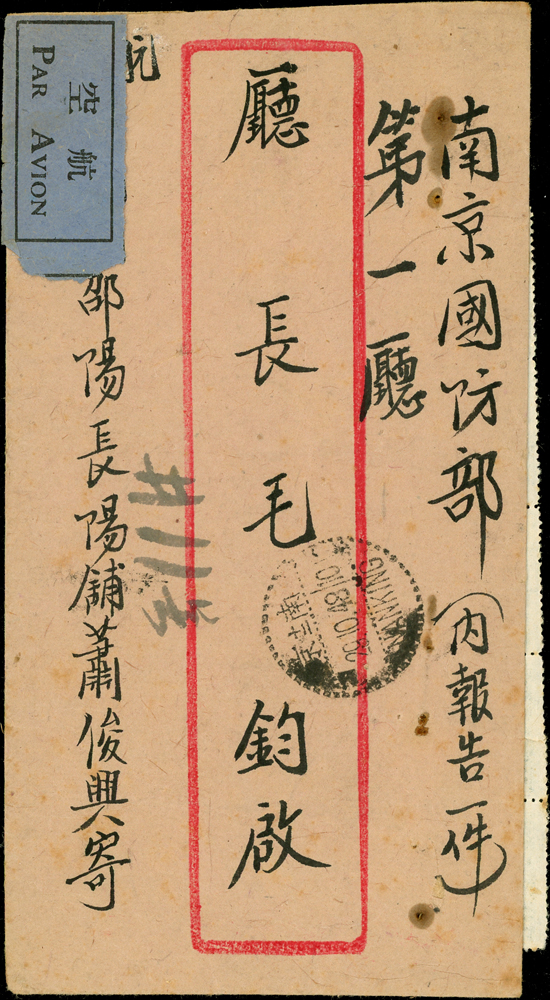 南京國防部(內報告一件)
第一廳
廳長毛鈞啟
邵陽長陽舖蕭俊興寄
航
航空
PAR AVION
NANKING
南京